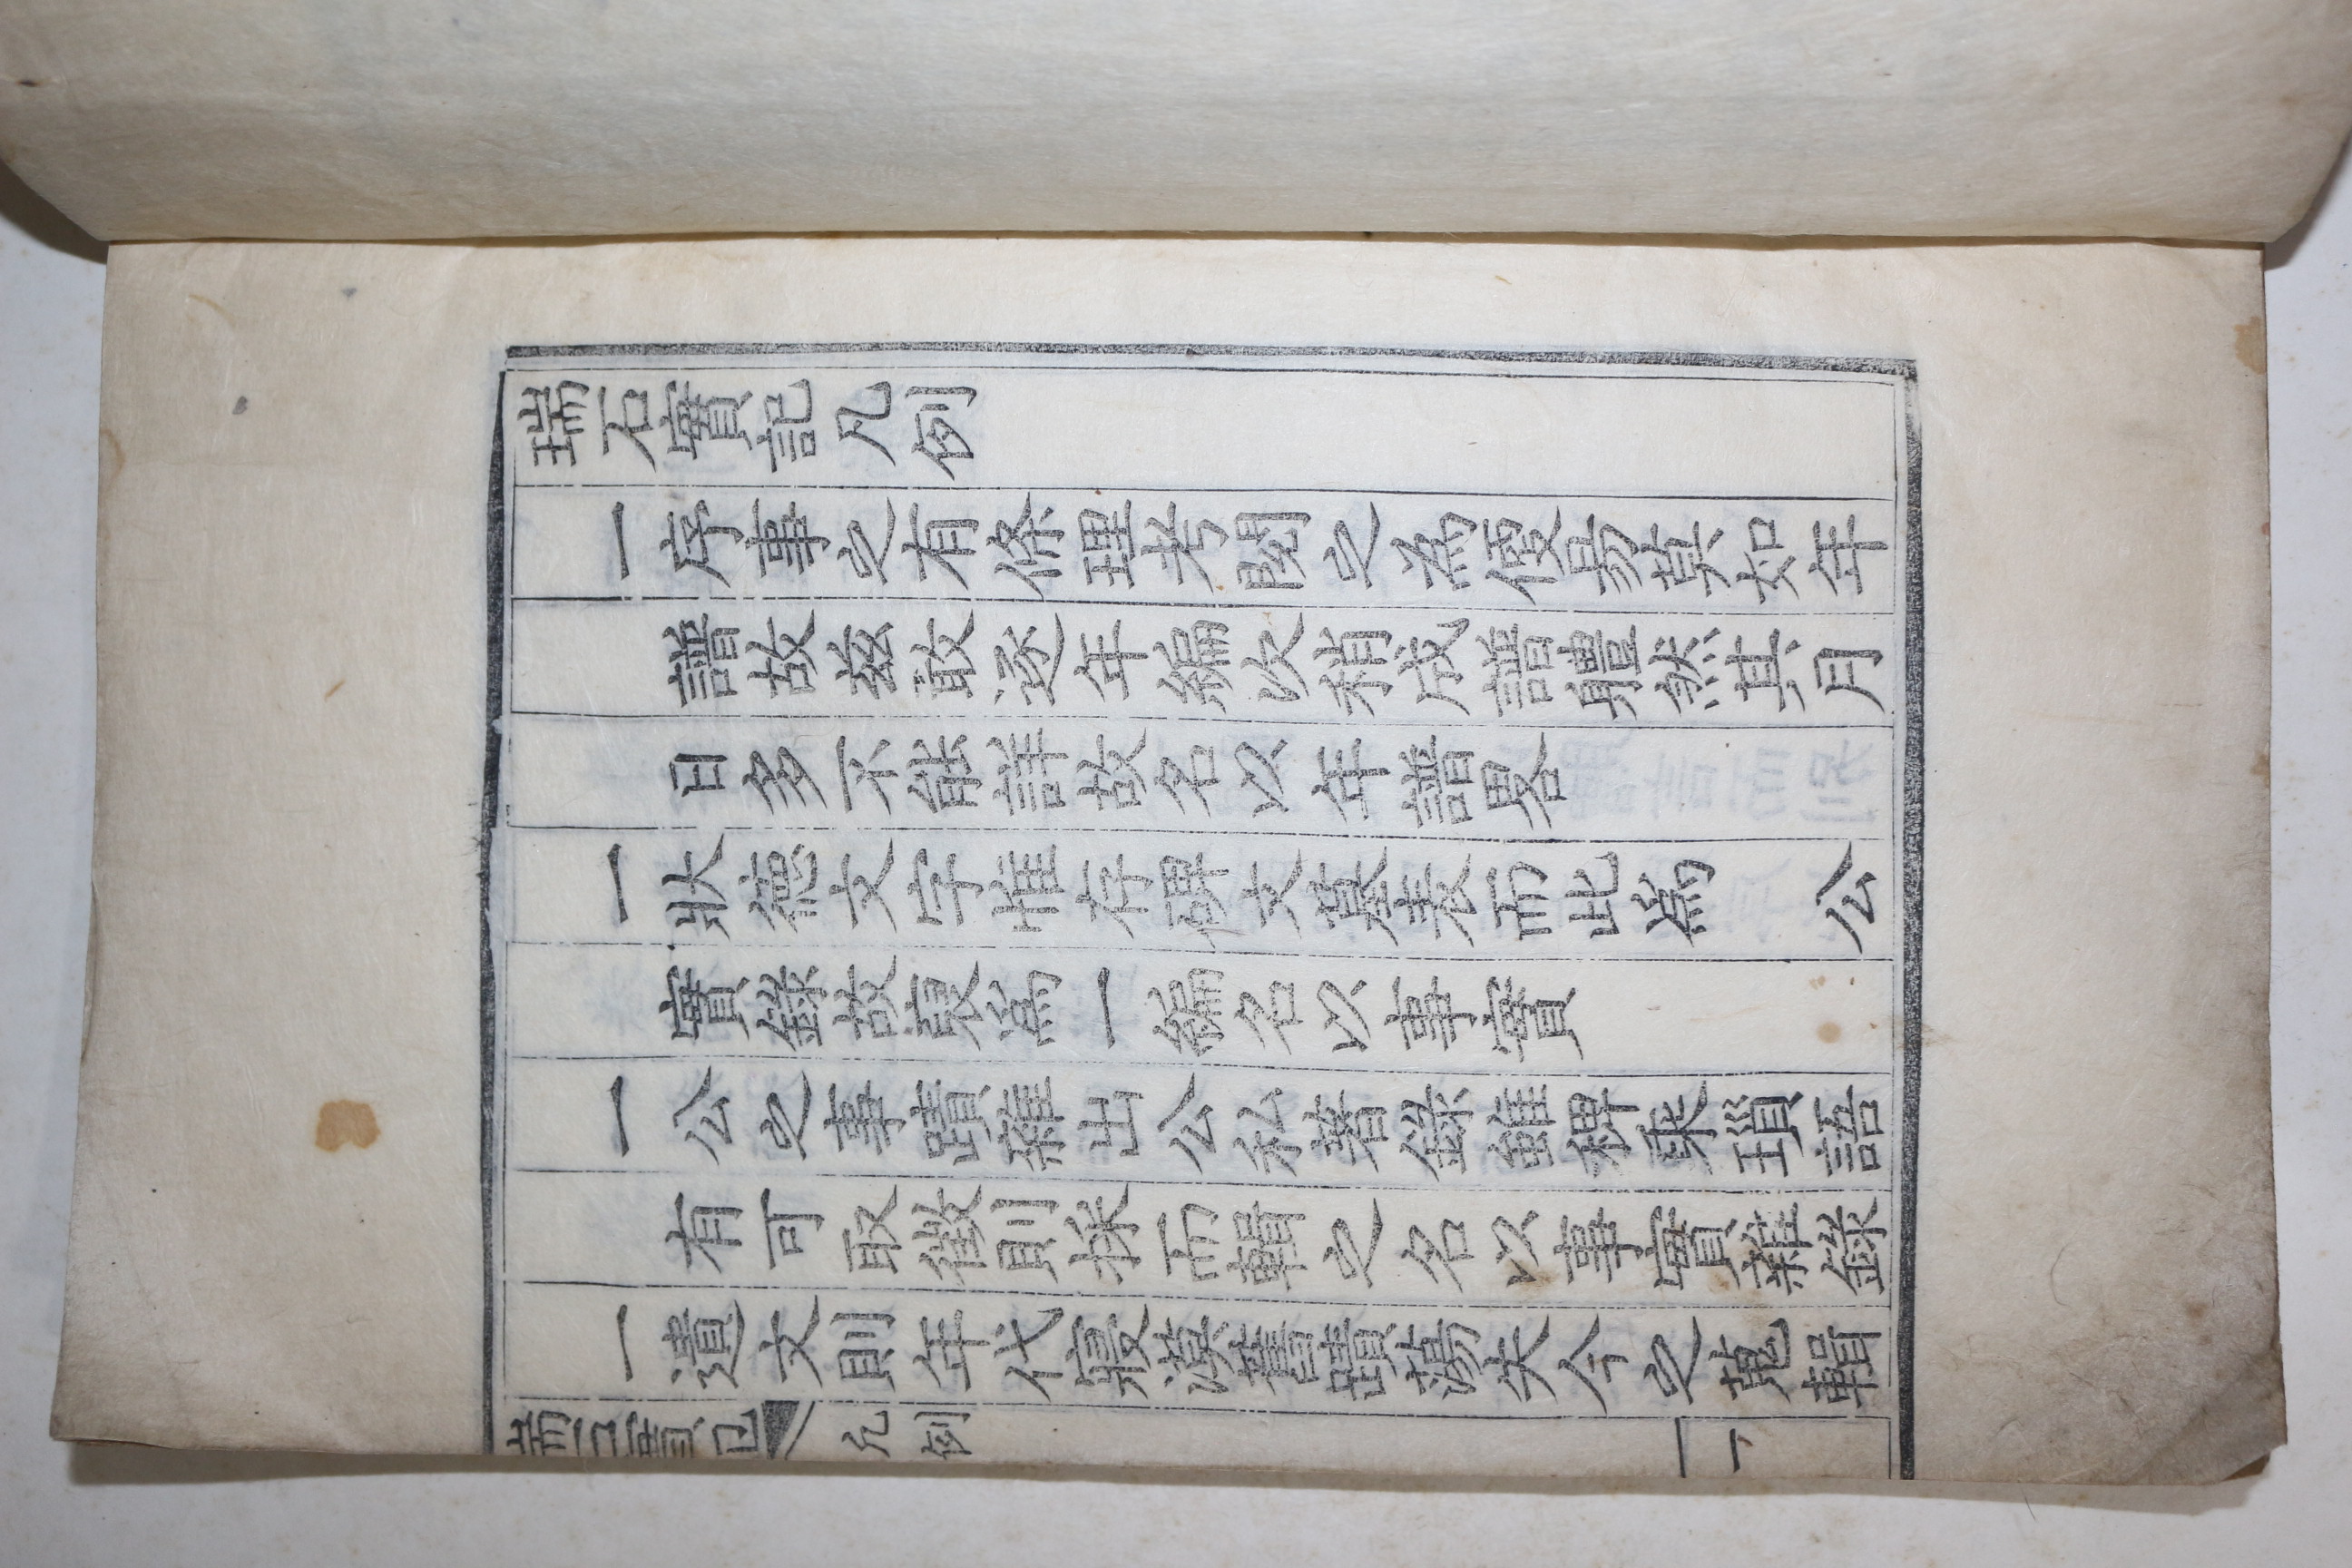 瑞石實記凡例
一序事之有條理考閱之爲便易莫如年
譜故玆敢逐年編次稍成譜軆然其月
日多不能詳故名以年譜畧
一狀德文字惟存碑文墓表而此爲 公
實錄故裒爲一編名以事實
一公之事蹟雜出公私著錄雖稗乘瑣語
有可取徵則採而輯之名以事實雜錄
一遺文則年代寢遠舊蹟蕩失今之蒐輯
瑞石實記 凡例 一